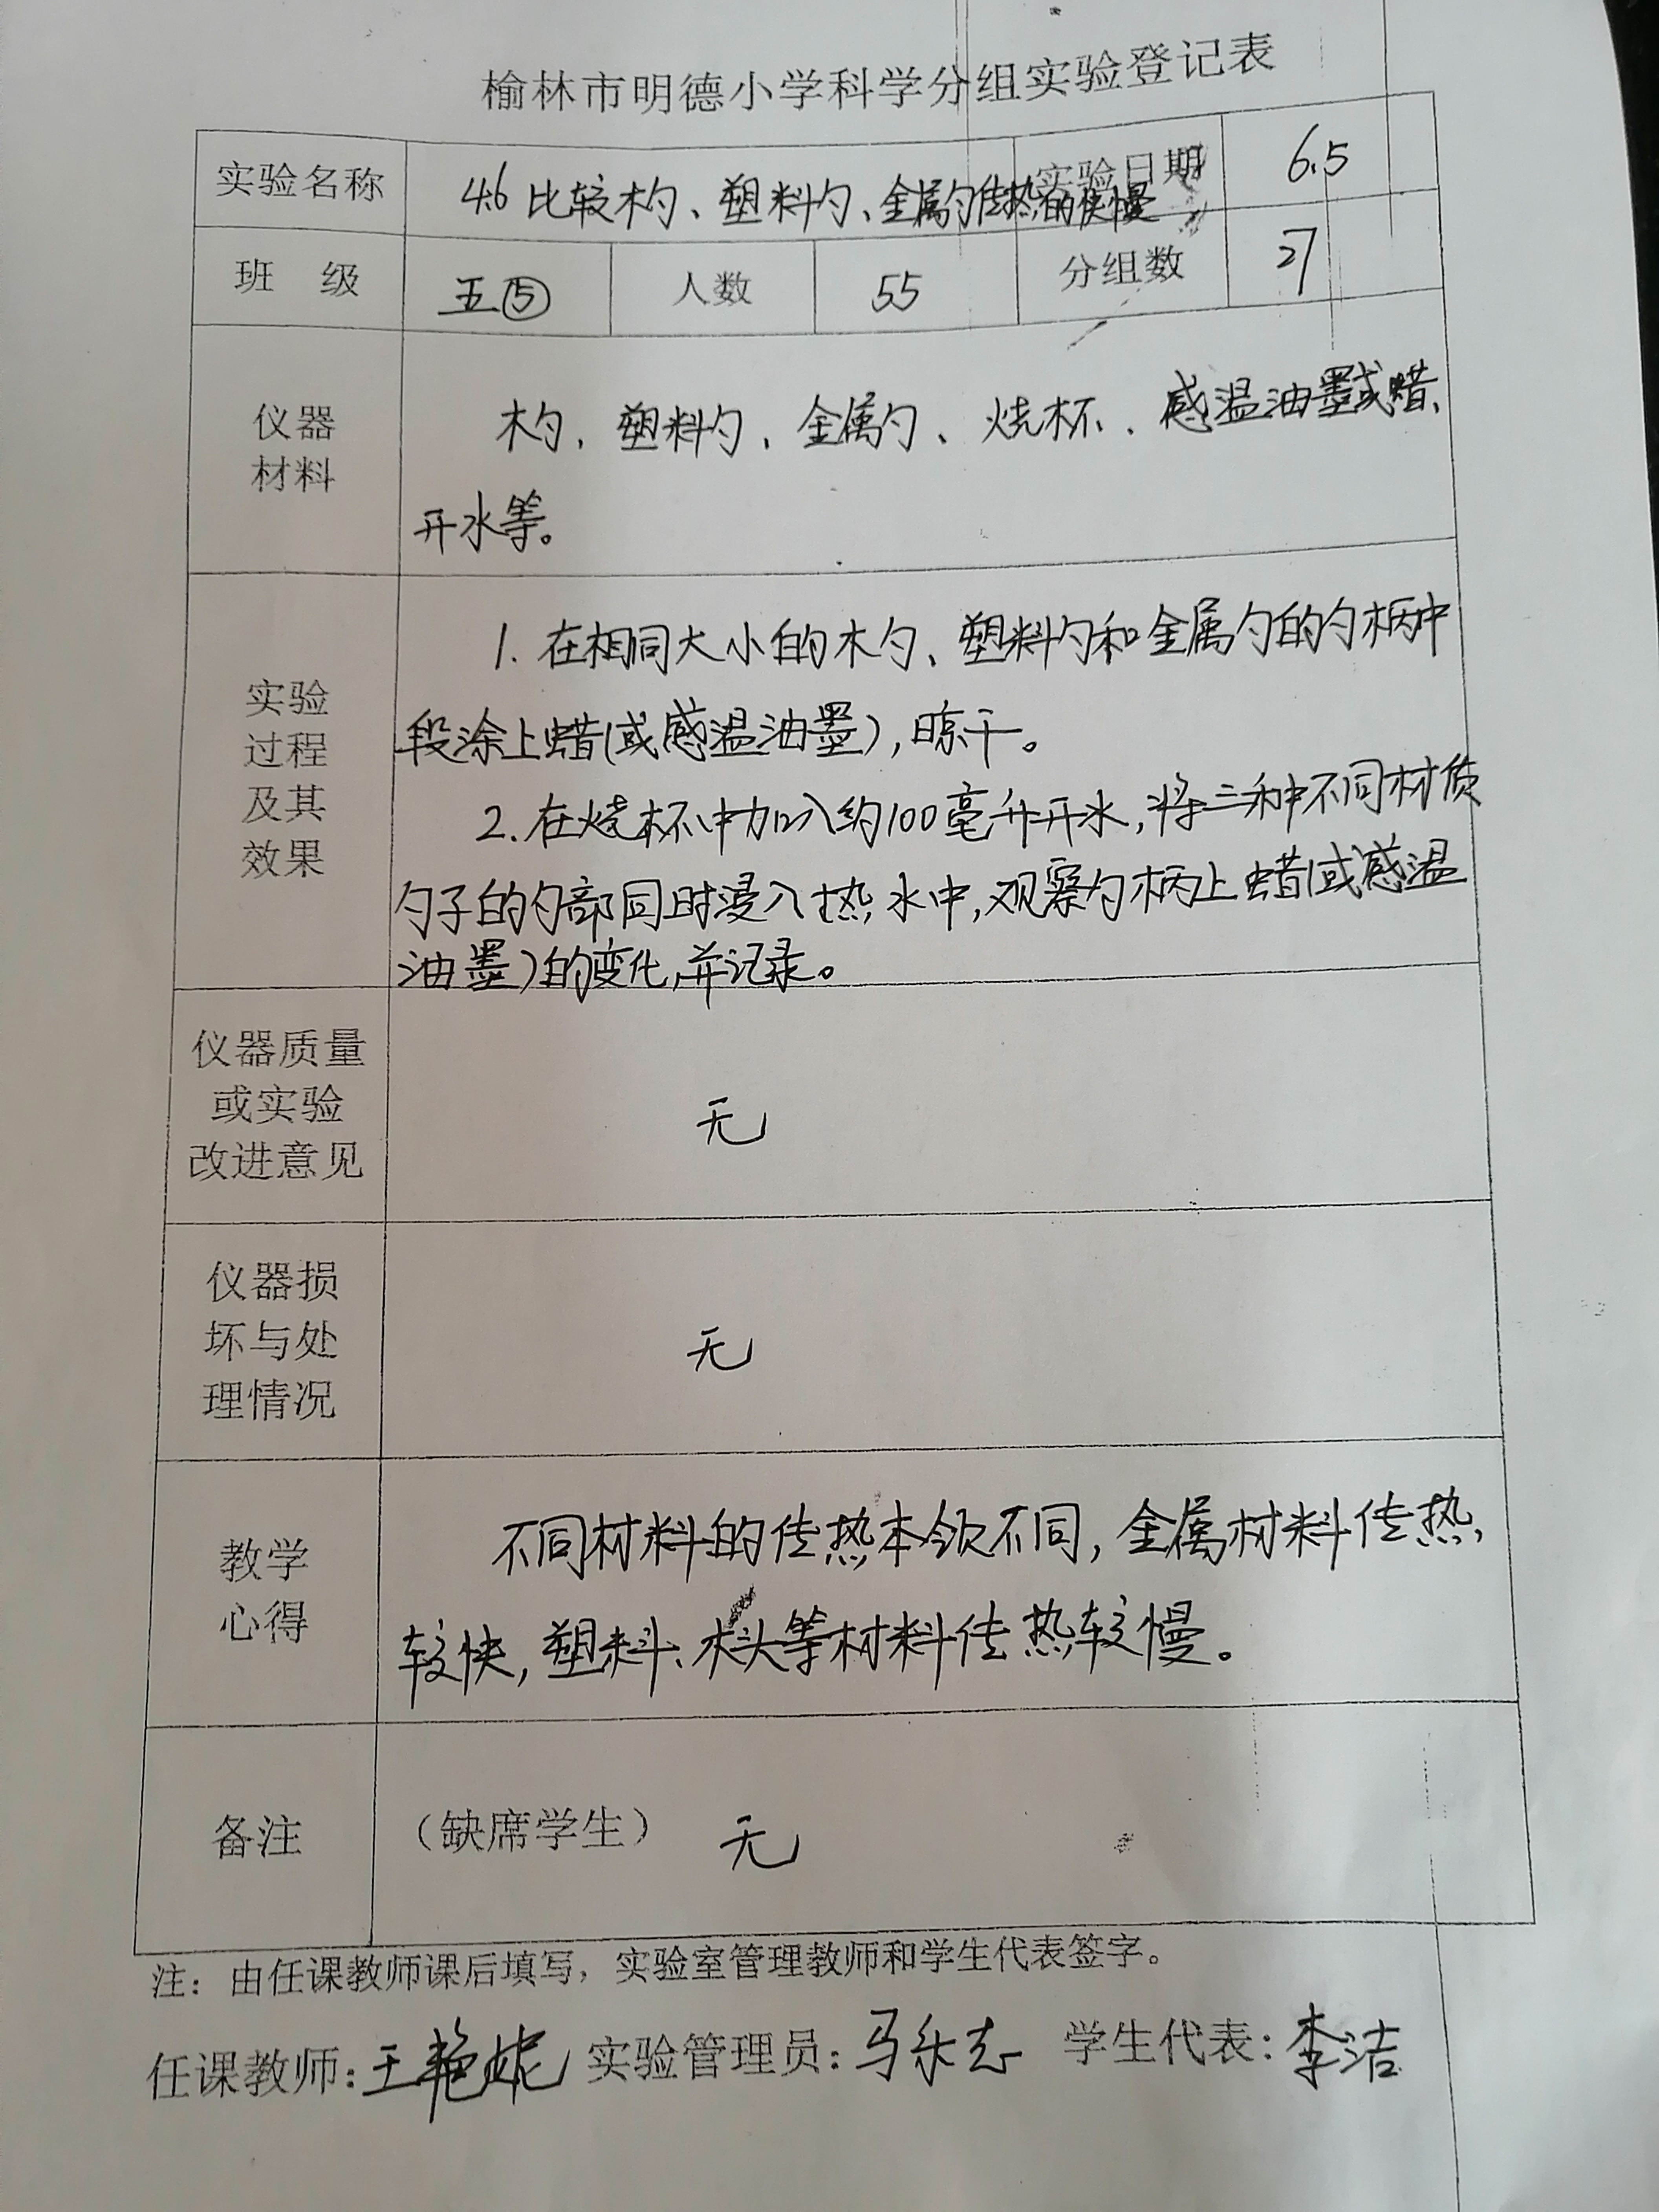 榆林市明德小学科学分组实验登记表
实验名称 46 比较木勺、塑料勺、金属勺传热的快慢 实验日期 6.5
班 级 五⑤ 人数 55 分组数 27
仪器
材料
木勺、塑料勺、金属勺、烧杯、感温油墨或蜡、
开水等。
实验
过程
及其
效果
1. 在相同大小的木勺、塑料勺和金属勺的勺柄中
段涂上蜡(或感温油墨),晾干。
2. 在烧杯中加入约100毫升开水,将三种不同材质
勺子的勺部同时浸入热水中,观察勺柄上蜡(或感温
油墨)的变化,并记录。
仪器质量
或实验
改进意见
无
仪器损
坏与处
理情况
无
教学
心得
不同材料的传热本领不同,金属材料传热
较快,塑料、木头等材料传热较慢。
备注 (缺席学生) 无
注:由任课教师课后填写,实验室管理教师和学生代表签字。
任课教师:王艳妮 实验管理员:马乐志 学生代表:李洁